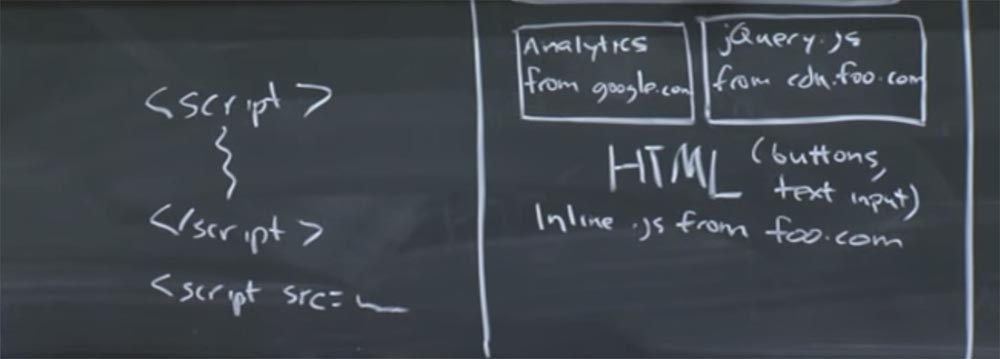 <script>
</script>
<script src=
Analytics
from google.com
jQuery.js
from cdn.foo.com
HTML (buttons,
text input)
Inline .js from foo.com